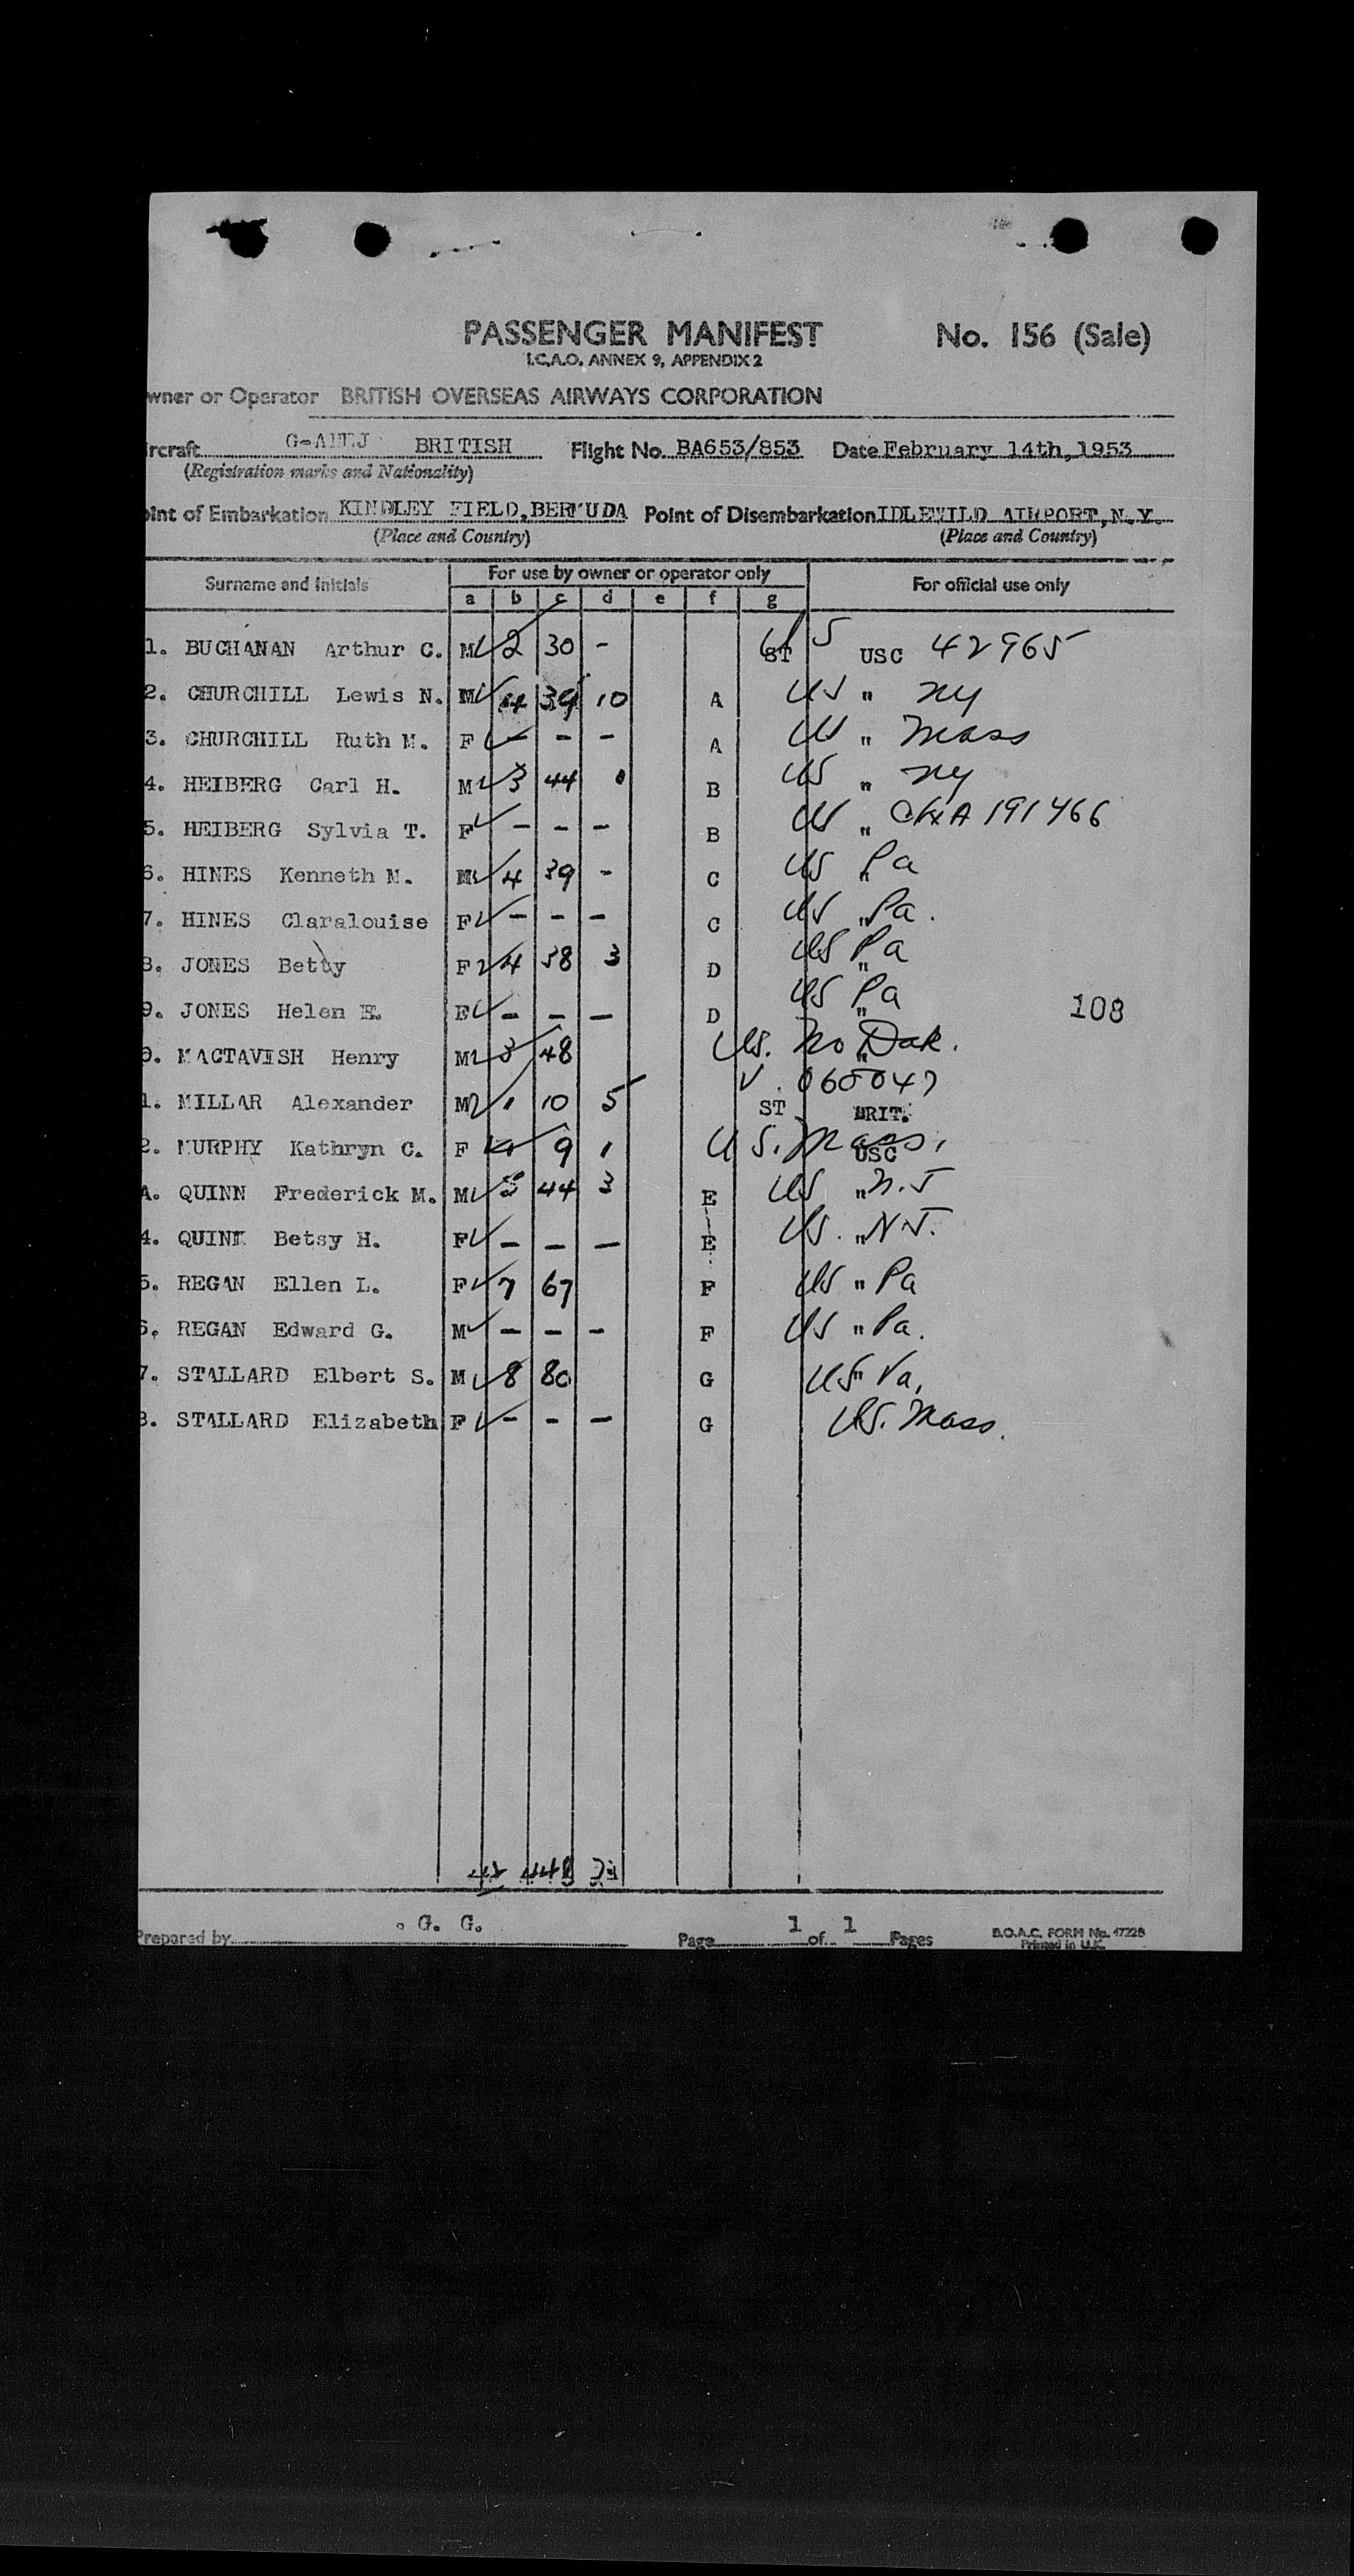 PASSENGER MANIFEST No. 156 (Sale)
I.C.A.O. ANNEX 9, APPENDIX 2
wner or Operator BRITISH OVERSEAS AIRWAYS CORPORATION
ircraft BRITISH Flight No. BA653/853 Date February 14th, 1953
(Registration marks and Nationality)
oint of Embarkation KINDLEY FIELD, BERMUDA Point of Disembarkation IDLEWILD AIRPORT, N.Y.
(Place and Country) (Place and Country)
Surname and initials For use by owner or operator only For official use only
a b c d e f g
1. BUCHANAN Arthur C. M 2 30 - US ST USC 42965
2. CHURCHILL Lewis N. M 4 39 10 A US " NY
3. CHURCHILL Ruth M. F - - - A US " Mass
4. HEIBERG Carl H. M 3 44 1 B US " NY
5. HEIBERG Sylvia T. F - - - B US " 191466
6. HINES Kenneth N. M 4 39 - C US " Pa
7. HINES Claralouise F - - - C US " Pa.
8. JONES Betty F 4 38 3 D US " Pa
9. JONES Helen E. F - - - D US " Pa 108
0. MACTAVISH Henry M 3 48 US. " No Dak.
V. 060047
1. MILLAR Alexander M 1 10 5 ST BRIT.
2. MURPHY Kathryn C. F 9 1 US. Mass. USC
A. QUINN Frederick M. M 44 3 E US " N.J
4. QUINN Betsy H. F - - - E US. " N.J.
5. REGAN Ellen L. F 7 67 F US " Pa
6. REGAN Edward G. M - - - F US " Pa.
7. STALLARD Elbert S. M 8 80 G US " Va.
8. STALLARD Elizabeth F - - - G US. Mass.
42 448
Prepared by G. G. Page 1 of 1 Pages B.O.A.C. FORM No. 1722B
Printed in U.K.